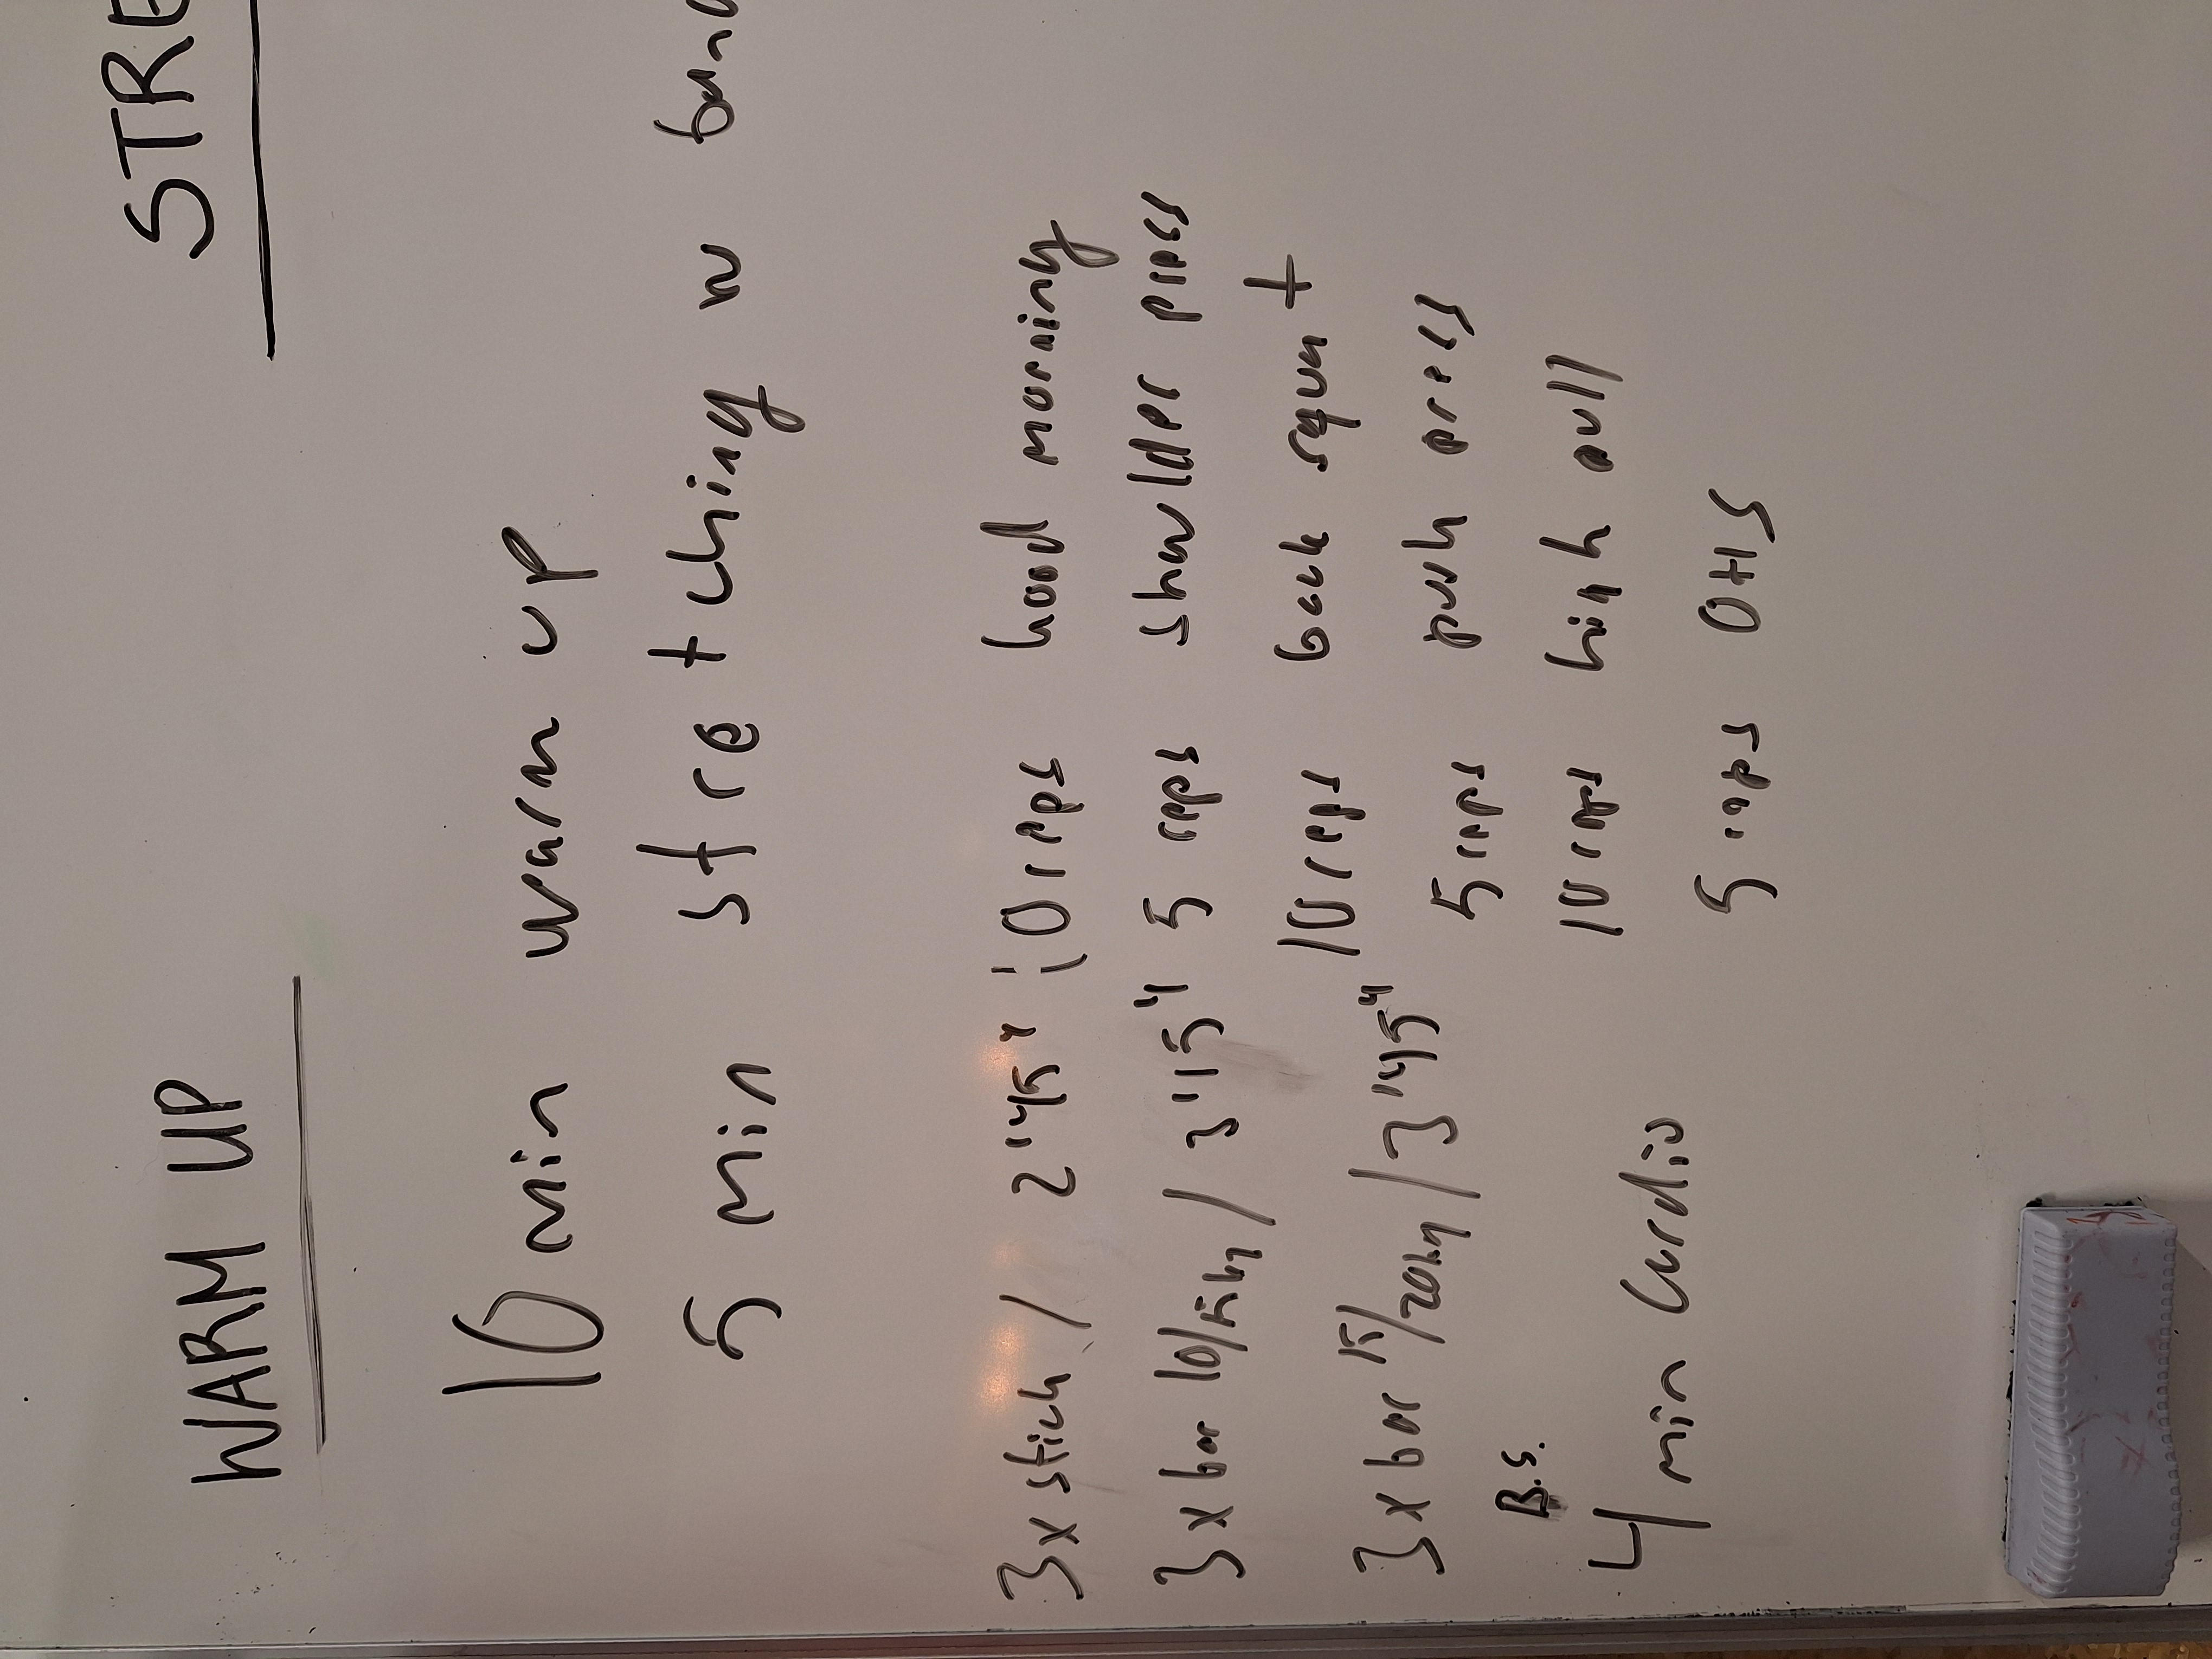 WARM UP STRE
10 min warm up
5 min stretching w ban
3x stick / 2 10 reps hood morning
3x bar 10/15kg / 3'15" 5 reps shoulder press
10 reps back squat
3x bar 15/20kg / 3'45"
5 reps push press
B.S.
10 reps high pull
4 min Cardio
5 reps OHS